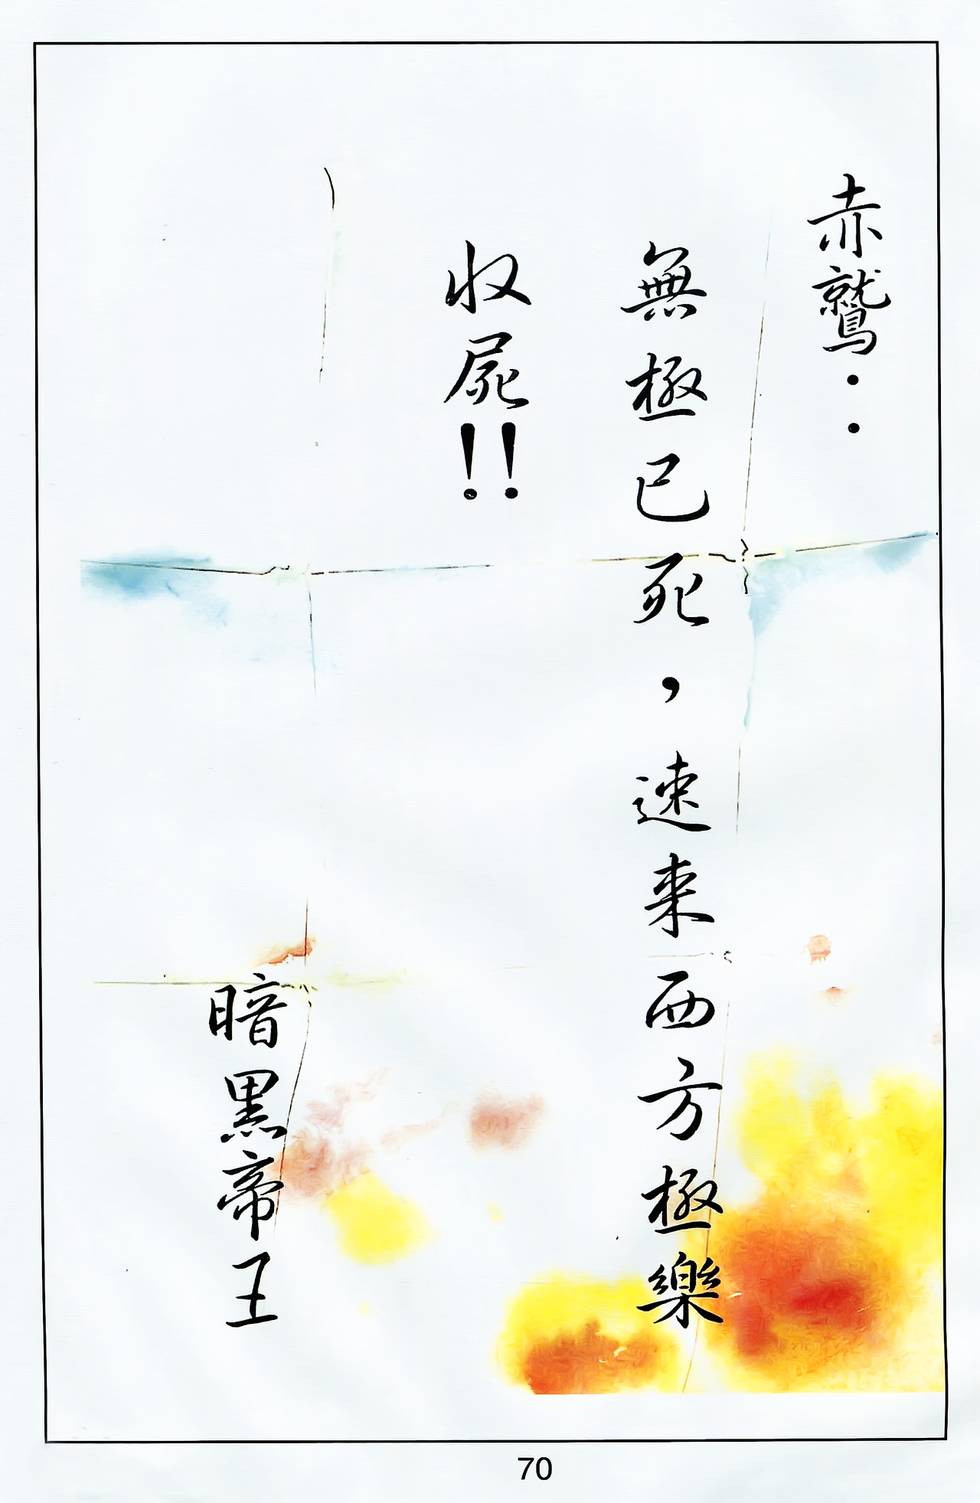 赤鷲：
無極已死，速来西方極樂
収屍!!
暗黒帝王
70